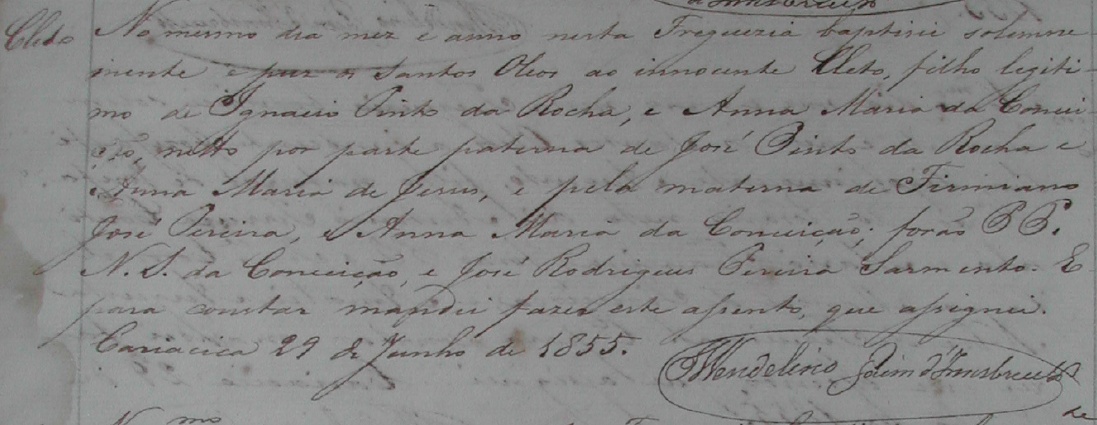 d'Innsbruck
Cleto No mesmo dia mez e anno nesta Freguezia baptisei solemne-
mente e puz os Santos Oleos ao innocente Cleto, filho legiti-
mo de Ignacio Pinto da Rocha, e Anna Maria da Concei-
ção, netto por parte paterna de José Pinto da Rocha e
Anna Maria de Jesus, e pela materna de Firmiano
José Pereira, e Anna Maria da Conceição; forão P P.
N. S. da Conceição, e José Rodrigues Pereira Sarmento. E
para constar mandei fazer este assento, que assignei.
Cariacica 29 de Junho de 1855.
Fr Wendelino d'Innsbruck
No mmo